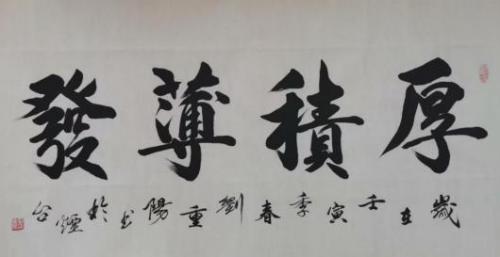 厚積薄發
歲在壬寅季春劉重陽书於煙台